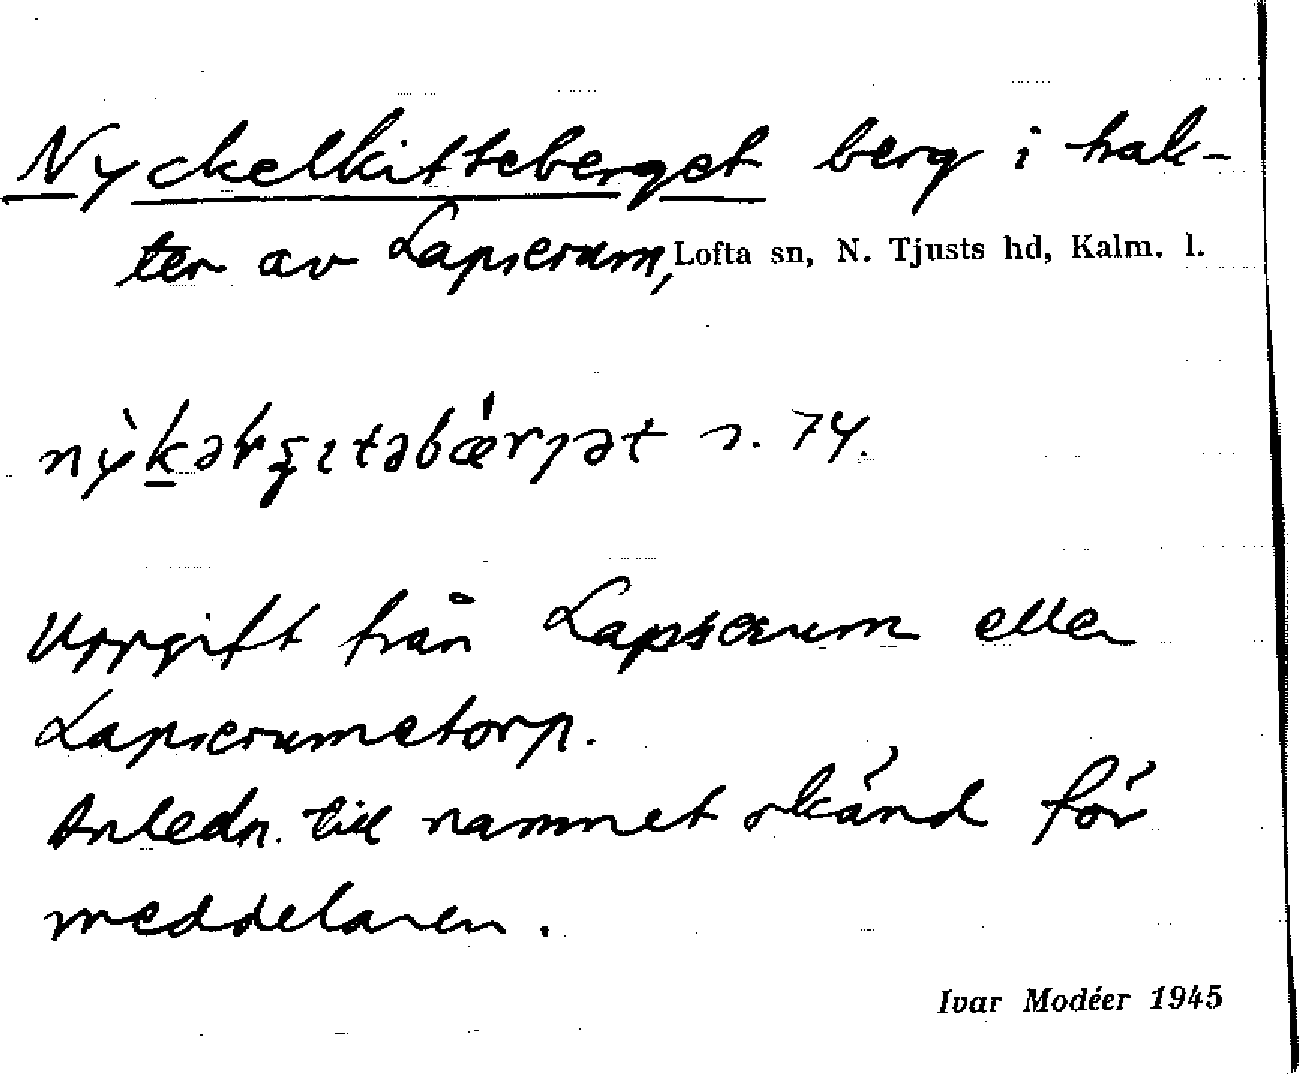 Nyckelkitteberget berg i trak-
ter av Lapserum, Lofta sn, N. Tjusts hd, Kalm. l.
s. 74.
Uppgift från Lapserum eller
Lapserumstorp.
Anledn. till namnet okänd för
meddelaren.
Ivar Modéer 1945